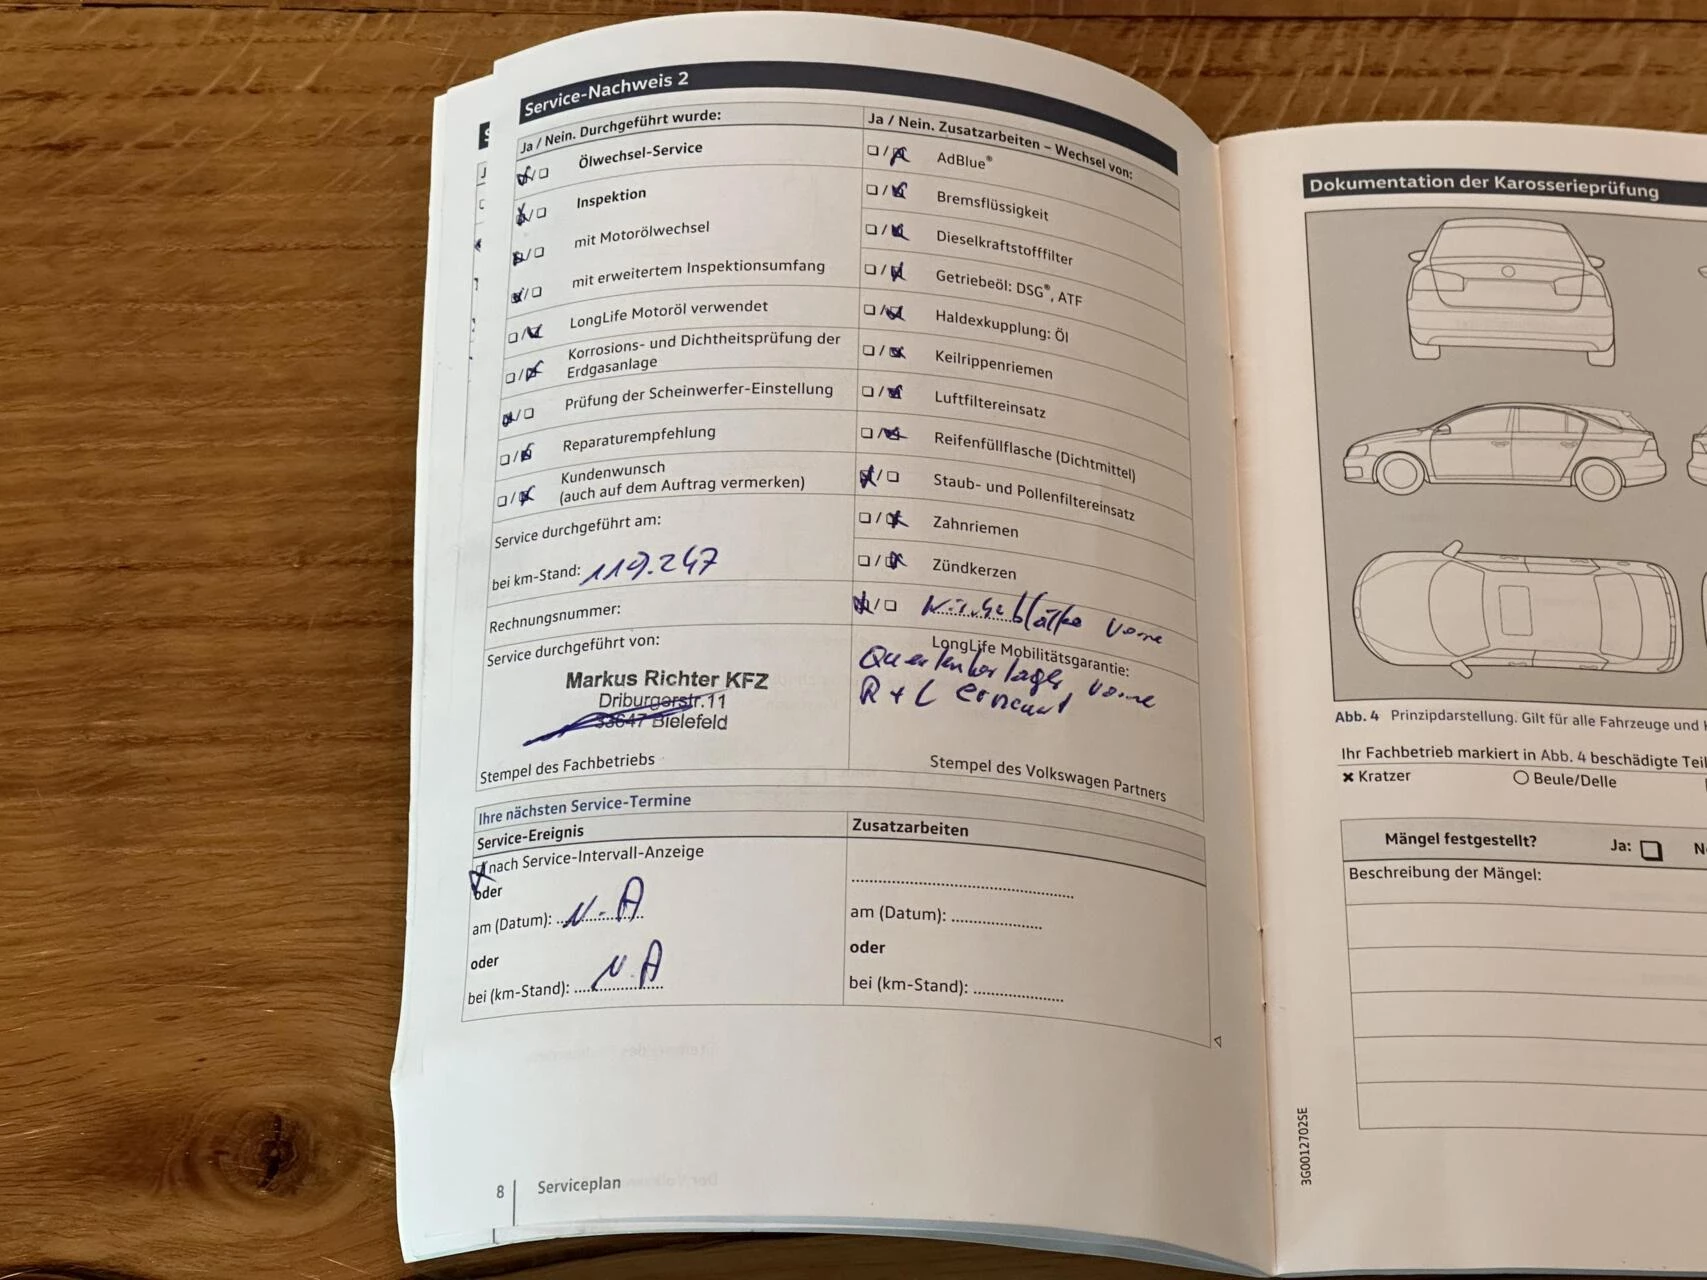 Service-Nachweis 2
Ja / Nein. Durchgeführt wurde:
Ölwechsel-Service
Inspektion
mit Motorölwechsel
mit erweitertem Inspektionsumfang
LongLife Motoröl verwendet
Korrosions- und Dichtheitsprüfung der
Erdgasanlage
Prüfung der Scheinwerfer-Einstellung
Reparaturempfehlung
Kundenwunsch
(auch auf dem Auftrag vermerken)
Service durchgeführt am:
bei km-Stand: 119.247
Rechnungsnummer:
Service durchgeführt von:
Markus Richter KFZ
Driburgerstr.11
33647 Bielefeld
Stempel des Fachbetriebs
Ja / Nein. Zusatzarbeiten – Wechsel von:
AdBlue®
Bremsflüssigkeit
Dieselkraftstofffilter
Getriebeöl: DSG®, ATF
Haldexkupplung: Öl
Keilrippenriemen
Luftfiltereinsatz
Reifenfüllflasche (Dichtmittel)
Staub- und Pollenfiltereinsatz
Zahnriemen
Zündkerzen
Wischblätter vorne
LongLife Mobilitätsgarantie:
Querlenkerlager vorne
R + L erneuert
Stempel des Volkswagen Partners
Ihre nächsten Service-Termine
Service-Ereignis
nach Service-Intervall-Anzeige
oder
am (Datum): N.A
oder
bei (km-Stand): N.A
Zusatzarbeiten
am (Datum):
oder
bei (km-Stand):
8
Serviceplan
Dokumentation der Karosserieprüfung
Abb. 4 Prinzipdarstellung. Gilt für alle Fahrzeuge und
Ihr Fachbetrieb markiert in Abb. 4 beschädigte Teil
Kratzer
Beule/Delle
Mängel festgestellt?
Ja:
Beschreibung der Mängel:
3G0012702SE